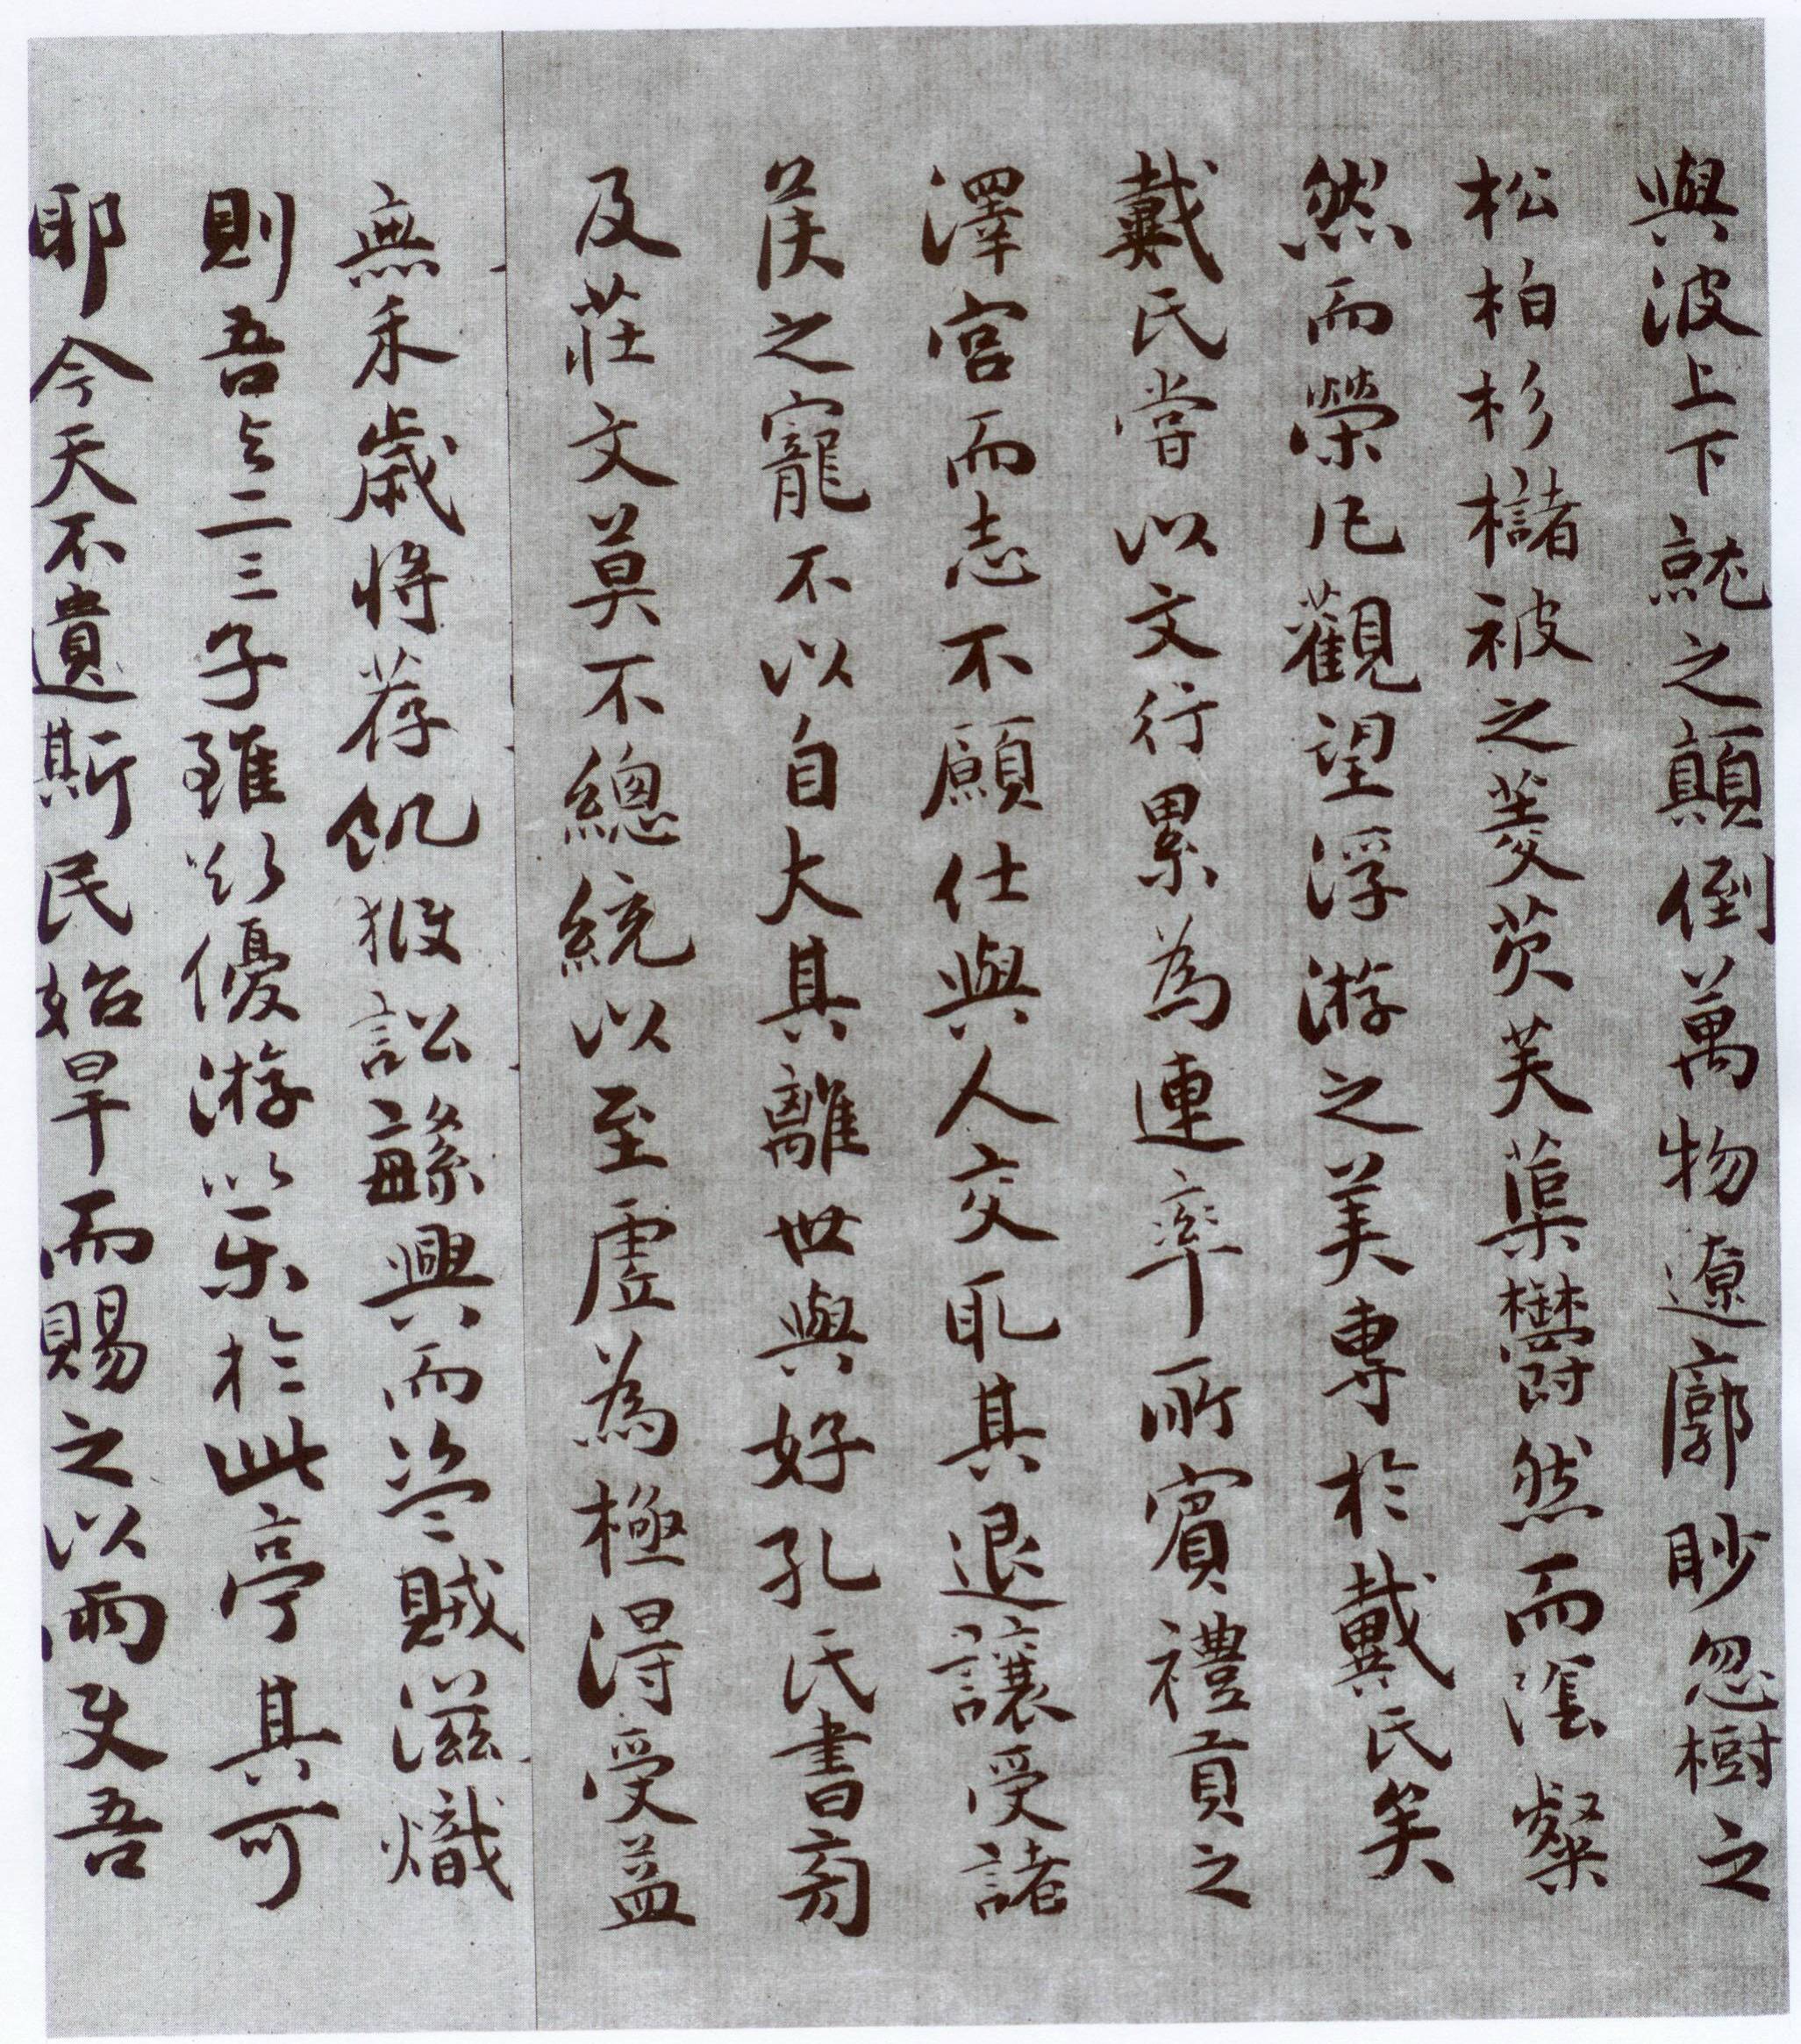 與波上下就之顛倒萬物遼廓眇忽樹之
松柏杉櫧被之菱芡芙蕖鬱然而陰粲
然而榮凡觀望浮游之美專於戴氏矣
戴氏嘗以文行累為連率所賓禮貢之
澤宮而志不願仕與人交取其退讓受諸
侯之寵不以自大其離世與好孔氏書旁
及莊文莫不總統以至虛為極得受益
無禾歲將荐飢獄訟繁興而盜賊滋熾
則吾与二三子雖欲優游以樂於此亭其可
耶今天不遺斯民始旱而賜之以雨使吾